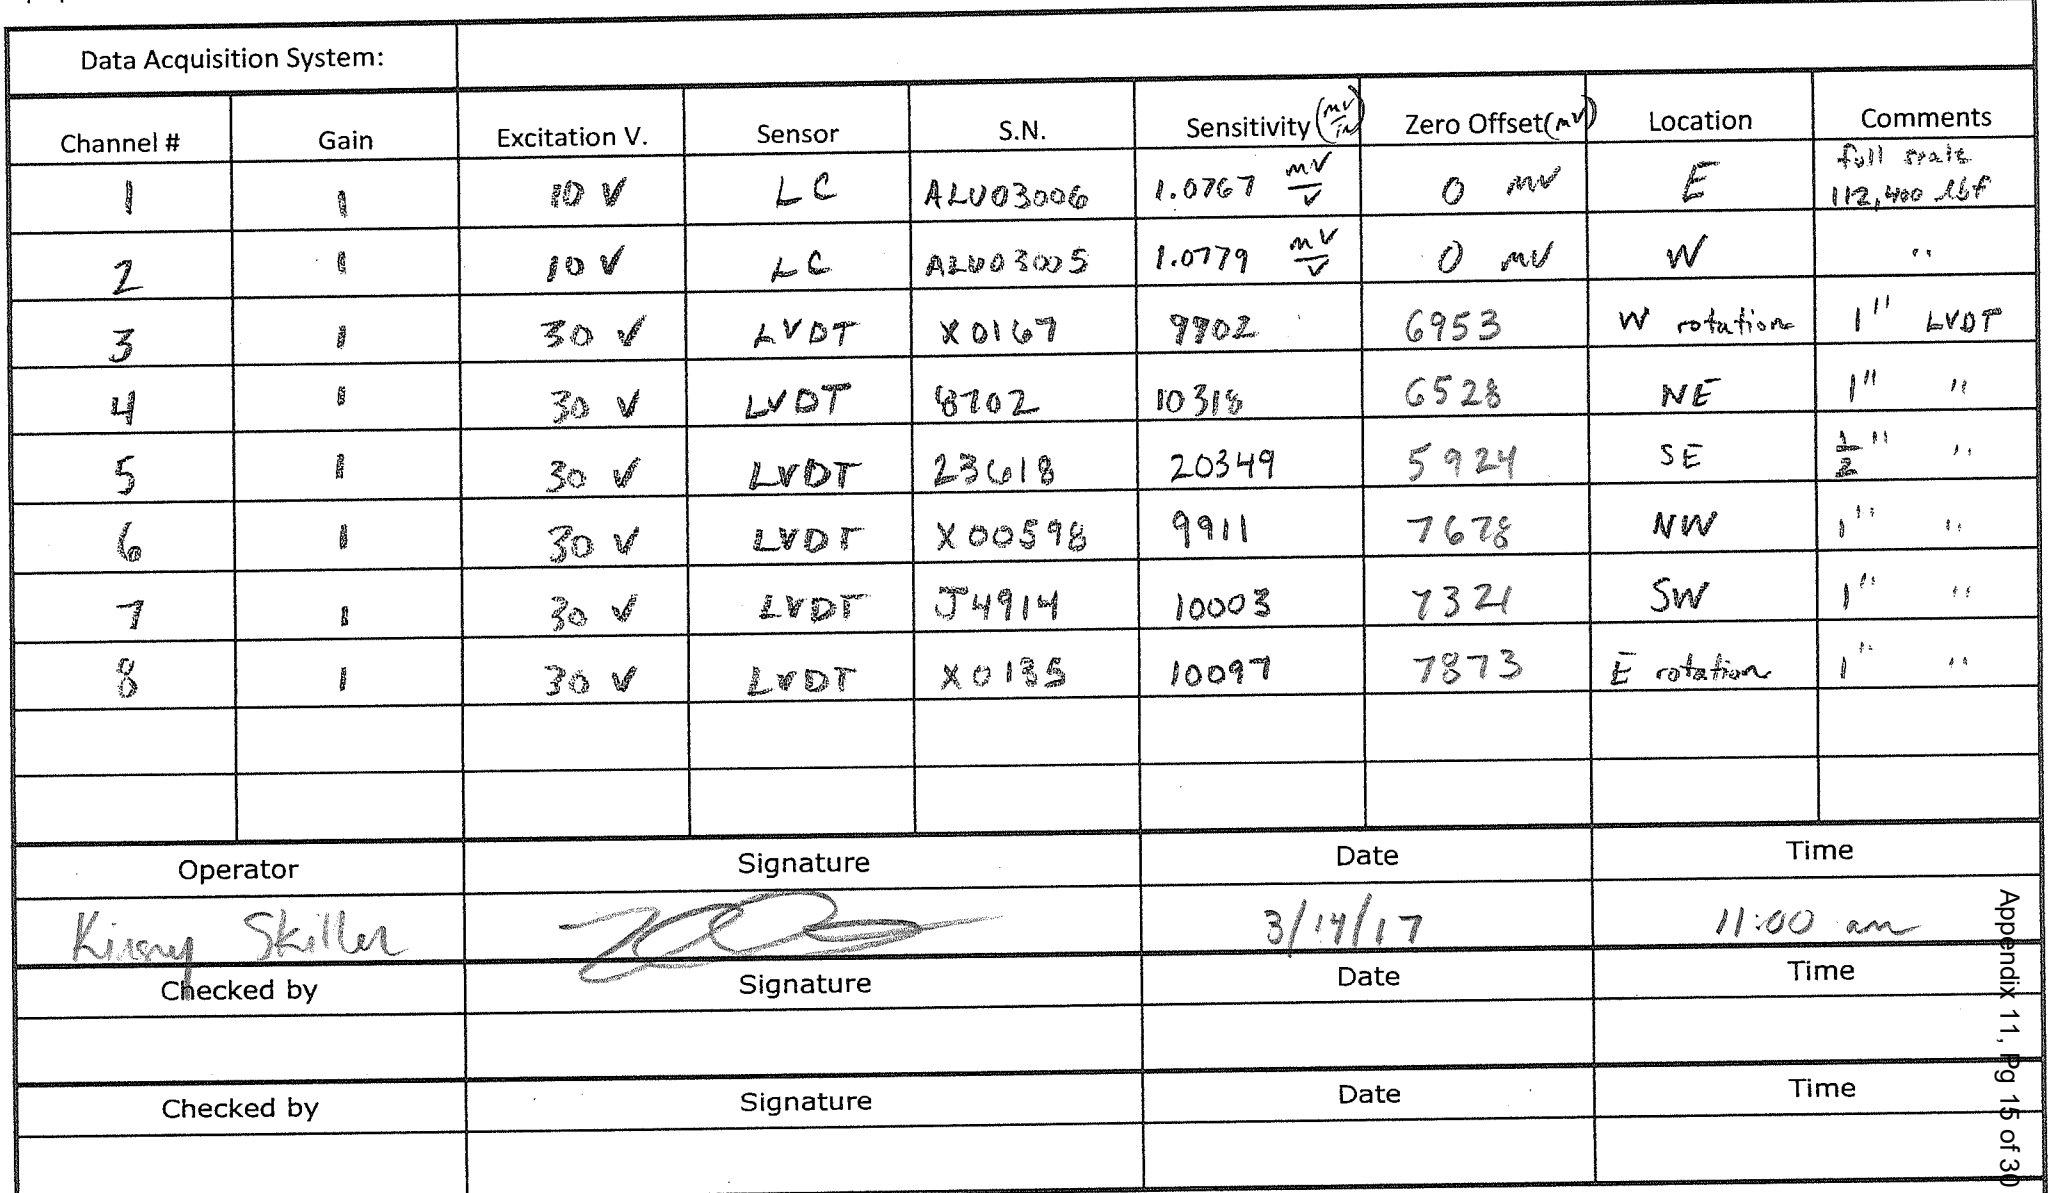 Data Acquisition System:
Channel # Gain Excitation V. Sensor S.N. Sensitivity (mV/in) Zero Offset (mV) Location Comments
1 1 10 V LC ALU03006 1.0767 mV/V 0 mV E full scale 112,400 lbf
2 1 10 V LC ALU03005 1.0779 mV/V 0 mV W "
3 1 30 V LVDT X0167 9902 6953 W rotation 1" LVDT
4 1 30 V LVDT 8702 10318 6528 NE 1" "
5 1 30 V LVDT 23618 20349 5924 SE 1/2" "
6 1 30 V LVDT X00598 9911 7678 NW 1" "
7 1 30 V LVDT J4914 10003 7321 SW 1" "
8 1 30 V LVDT X0135 10097 7873 E rotation 1" "
Operator Signature Date Time
Skiller 3/14/17 11:00 am
Checked by Signature Date Time
Checked by Signature Date Time
Appendix 11, Pg 15 of 30